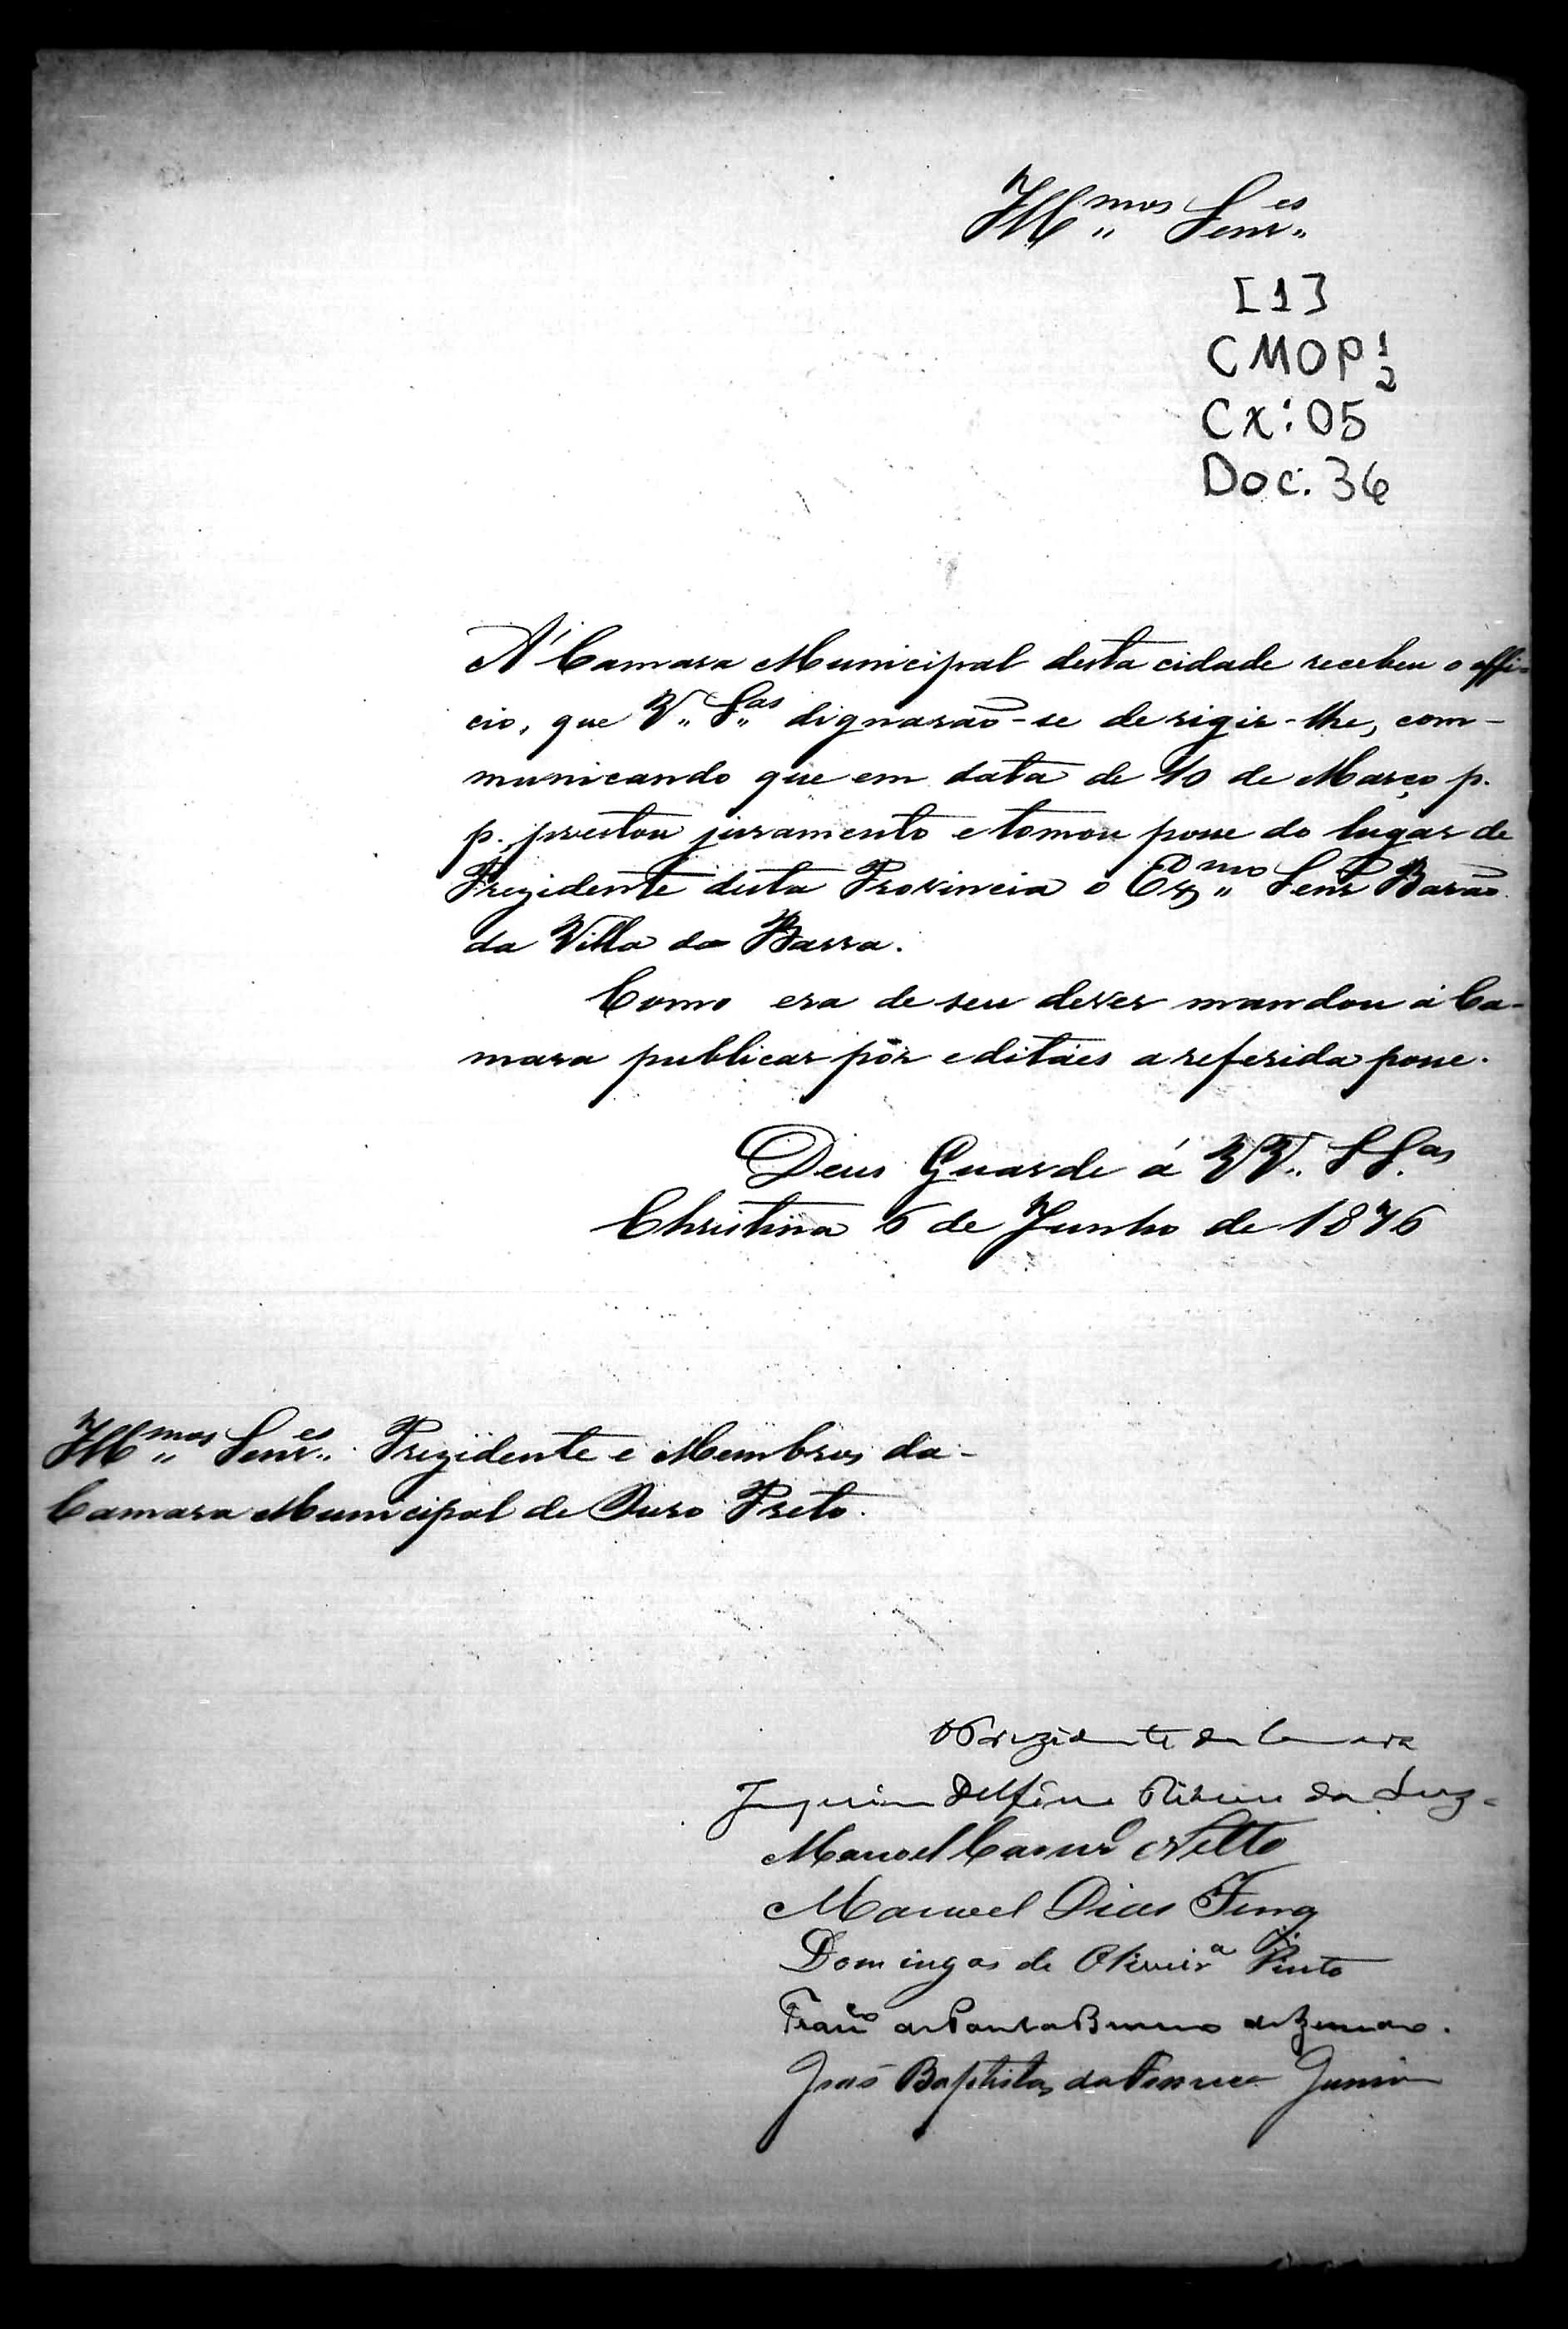 Illmos Senres
[1]
CMOP 1/2
Cx: 05
Doc. 36
A' Camara Municipal desta cidade recebeu o offi-
cio, que V. Sas dignarão-se derigir-lhe, com-
municando que em data de 10 de Março p.
p. prestou juramento e tomou posse do lugar de
Prezidente desta Provincia o Exmo Senr Barão
da Villa da Barra.
Como era de seu dever mandou a Ca-
mara publicar pôr editáes a referida posse.
Deus Guarde á VV. SSas
Christina 6 de Junho de 1876
Illmos Senres Prezidente e Membros da-
Camara Municipal de Ouro Preto.
O Prezidente da Camara
Joaquim Delfino Ribeiro da Luz
Manoel Netto
Manoel Dias Ferraz
Domingos de Oliveira Pinto
Franco de Paula Bueno de Azevedo.
João Baptista da Fonseca Junior